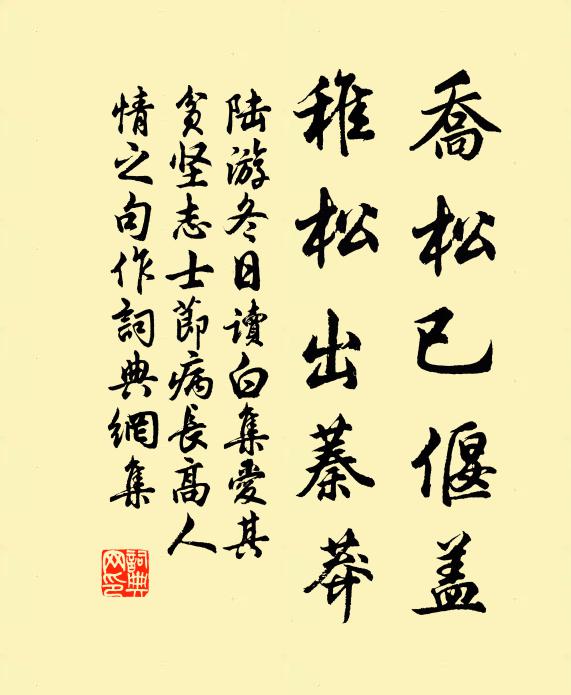 喬松已偃盖
稚松出蓁莽
陆游冬日读白集愛其
贫坚志士節病長高人
情之句作詞典網集
詞典网印